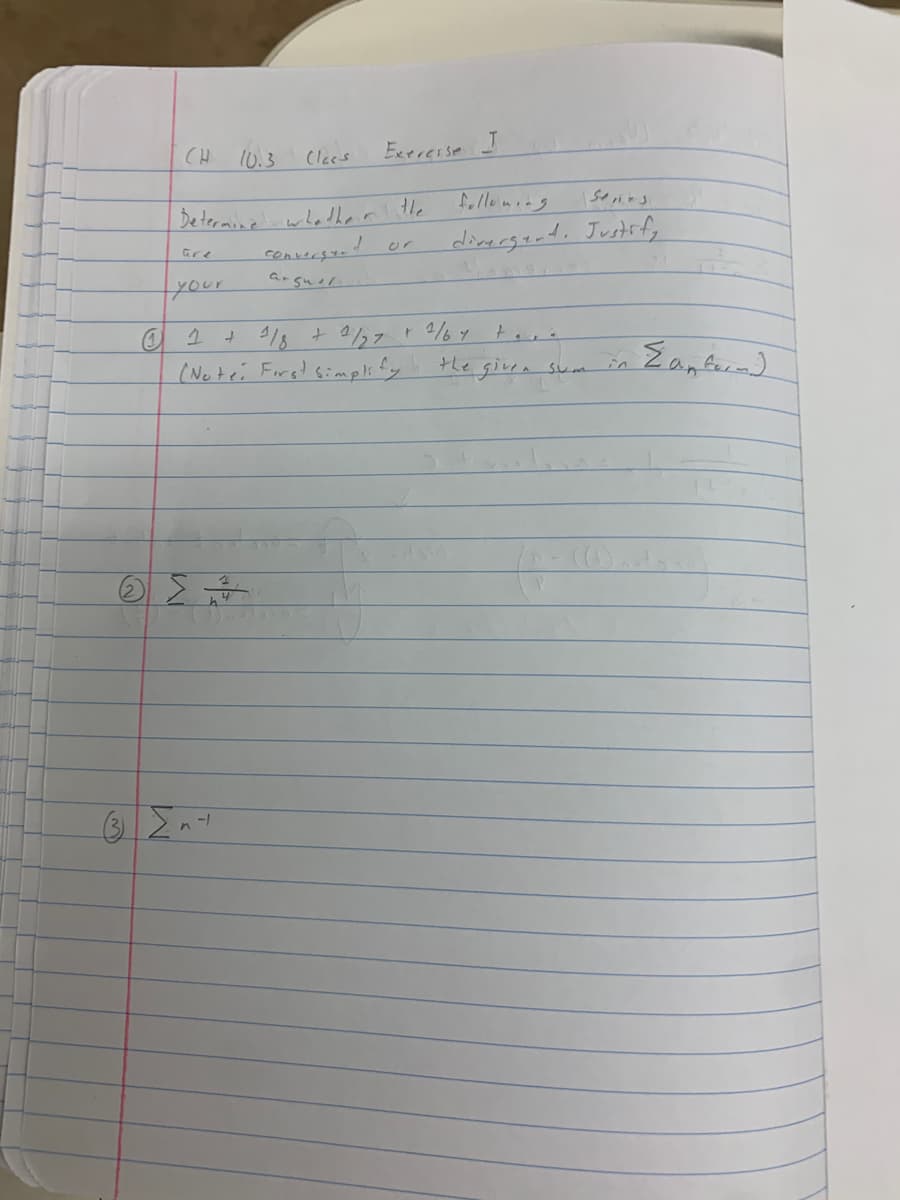 CH 10.3 Class Exercise I
Determine whether the following series
are convergent or divergent. Justify
your answer.
① 1 + 1/8 + 1/27 + 1/64 + ...
(Note: First simplify the given sum in Σ aₙ form.)
② Σ 1/n⁴
③ Σ n⁻¹